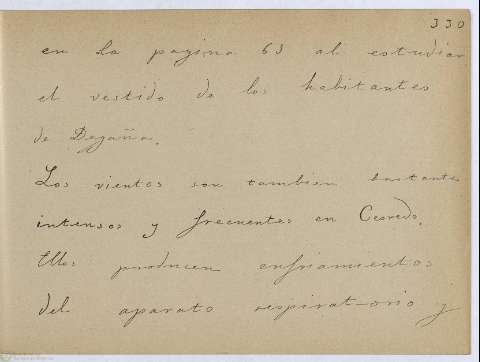 330
en la pagina 63 al estudiar
el vestido de los habitantes
de Degaña.
Los vientos son tambien bastante
intensos y frecuentes en Cerredo.
Ellos producen enfriamientos
del aparato respiratorio y